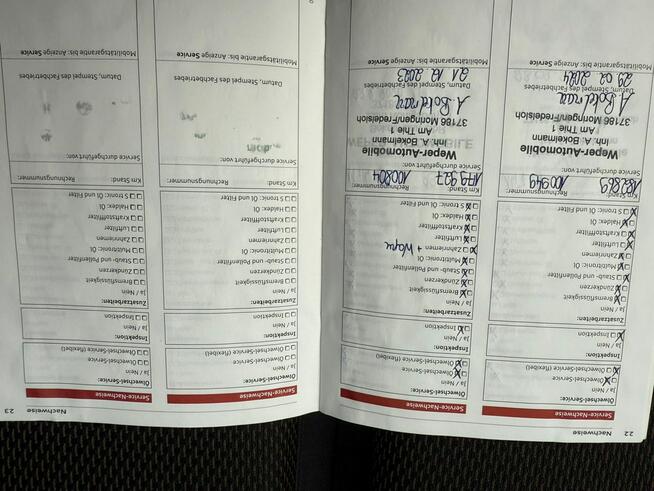 22 Nachweise
Service-Nachweise
Ölwechsel-Service:
Ja / Nein
Ölwechsel-Service
Ölwechsel-Service (flexibel)
Inspektion:
Ja / Nein
Inspektion
Zusatzarbeiten:
Ja / Nein
Bremsflüssigkeit
Zündkerzen
Staub- und Pollenfilter
Multitronic: Öl
Zahnriemen
Luftfilter
Kraftstofffilter
Haldex: Öl
S tronic: Öl und Filter
Km-Stand: Rechnungsnummer:
100949
Service durchgeführt von:
Weper-Automobile
Inh. A. Bokelmann
Am Thie 1
37186 Moringen/Fredelsloh
Datum, Stempel des Fachbetriebes
29.02.2024
Mobilitätsgarantie bis: Anzeige Service
Service-Nachweise
Ölwechsel-Service:
Ja / Nein
Ölwechsel-Service
Ölwechsel-Service (flexibel)
Inspektion:
Ja / Nein
Inspektion
Zusatzarbeiten:
Ja / Nein
Bremsflüssigkeit
Zündkerzen
Staub- und Pollenfilter
Multitronic: Öl
Zahnriemen + Wapu
Luftfilter
Kraftstofffilter
Haldex: Öl
S tronic: Öl und Filter
Km-Stand: Rechnungsnummer:
173 927 100804
Service durchgeführt von:
Weper-Automobile
Inh. A. Bokelmann
Am Thie 1
37186 Moringen/Fredelsloh
Datum, Stempel des Fachbetriebes
21.12.2023
Mobilitätsgarantie bis: Anzeige Service
Nachweise 23
Service-Nachweise
Ölwechsel-Service:
Ja / Nein
Ölwechsel-Service
Ölwechsel-Service (flexibel)
Inspektion:
Ja / Nein
Inspektion
Zusatzarbeiten:
Ja / Nein
Bremsflüssigkeit
Zündkerzen
Staub- und Pollenfilter
Multitronic: Öl
Zahnriemen
Luftfilter
Kraftstofffilter
Haldex: Öl
S tronic: Öl und Filter
Km-Stand: Rechnungsnummer:
Service durchgeführt von:
Datum, Stempel des Fachbetriebes
Mobilitätsgarantie bis: Anzeige Service
Service-Nachweise
Ölwechsel-Service:
Ja / Nein
Ölwechsel-Service
Ölwechsel-Service (flexibel)
Inspektion:
Ja / Nein
Inspektion
Zusatzarbeiten:
Ja / Nein
Bremsflüssigkeit
Zündkerzen
Staub- und Pollenfilter
Multitronic: Öl
Zahnriemen
Luftfilter
Kraftstofffilter
Haldex: Öl
S tronic: Öl und Filter
Km-Stand: Rechnungsnummer:
Service durchgeführt von:
Datum, Stempel des Fachbetriebes
Mobilitätsgarantie bis: Anzeige Service